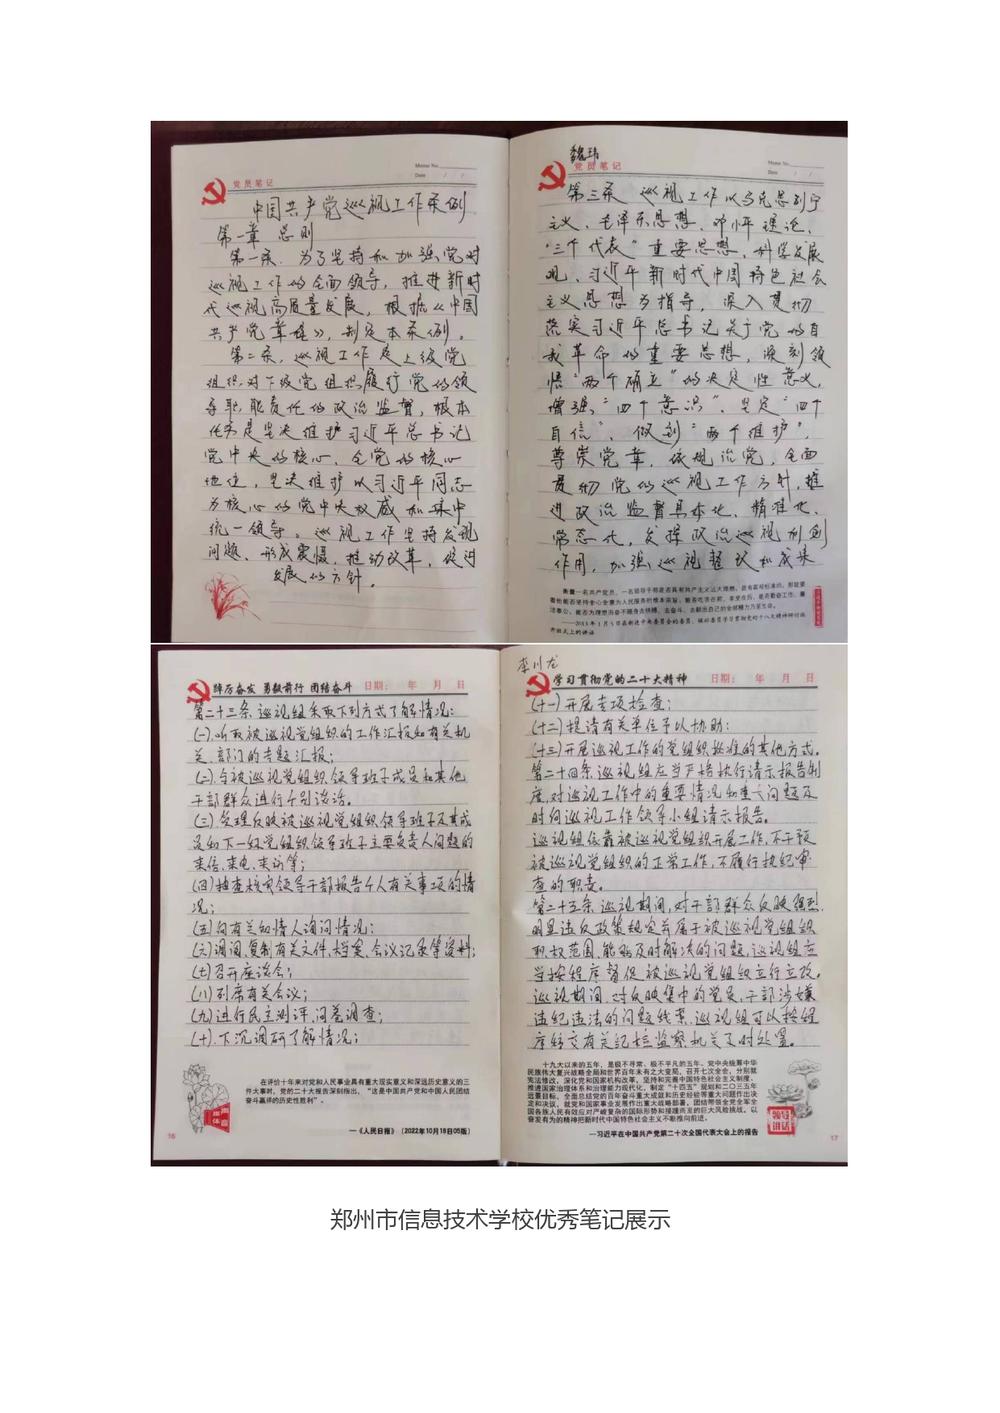 Memo No.
Date / /
党员笔记
中国共产党巡视工作条例
第一章 总则
第一条. 为了坚持和加强党对
巡视工作的全面领导，推进新时
代巡视高质量发展，根据《中国
共产党章程》，制定本条例。
第二条，巡视工作是上级党
组织对下级党组织履行党的领
导职能责任的政治监督，根本
任务是坚决维护习近平总书记
党中央的核心、全党的核心
地位，坚决维护以习近平同志
为核心的党中央权威和集中
统一领导。巡视工作坚持发现
问题、形成震慑，推动改革，促进
发展的方针。
魏玮
Memo No.
Date / /
党员笔记
第三条 巡视工作以马克思列宁
主义、毛泽东思想、邓小平理论、
“三个代表”重要思想、科学发展
观、习近平新时代中国特色社会
主义思想为指导，深入贯彻
落实习近平总书记关于党的自
我革命的重要思想，深刻领
悟“两个确立”的决定性意义，
增强“四个意识”、坚定“四个
自信”、做到“两个维护”，
尊崇党章，依规治党，全面
贯彻党的巡视工作方针，推
进政治监督具体化、精准化、
常态化，发挥政治巡视利剑
作用，加强巡视整改和成果
衡量一名共产党员、一名领导干部是否具有共产主义远大理想，是有客观标准的，那就要
看他能否坚持全心全意为人民服务的根本宗旨，能否吃苦在前、享受在后，能否勤奋工作、廉
洁奉公，能否为理想而奋不顾身去拼搏、去奋斗、去献出自己的全部精力乃至生命。
——2013年1月5日在新进中央委员会的委员、候补委员学习贯彻党的十八大精神研讨班
开班式上的讲话
踔厉奋发 勇毅前行 团结奋斗 日期： 年 月 日
第二十三条 巡视组采取下列方式了解情况：
(一).听取被巡视党组织的工作汇报和有关机
关、部门的专题汇报；
(二).与被巡视党组织领导班子成员和其他
干部群众进行个别谈话。
(三).受理反映被巡视党组织领导班子及其成
员和下一级党组织领导班子主要负责人问题的
来信、来电、来访等；
(四)抽查核实领导干部报告个人有关事项的情
况；
(五)向有关知情人询问情况；
(六)调阅、复制有关文件、档案、会议记录等资料；
(七)召开座谈会；
(八)列席有关会议；
(九)进行民主测评、问卷调查；
(十).下沉调研了解情况；
在评价十年来对党和人民事业具有重大现实意义和深远历史意义的三
件大事时，党的二十大报告深刻指出，“这是中国共产党和中国人民团结
奋斗赢得的历史性胜利”。
—《人民日报》（2022年10月18日05版）
16
李川龙
学习贯彻党的二十大精神 日期： 年 月 日
(十一)开展专项检查；
(十二)提请有关单位予以协助；
(十三)开展巡视工作的党组织批准的其他方式。
第二十四条.巡视组应当严格执行请示报告制
度，对巡视工作中的重要情况和重大问题及
时向巡视工作领导小组请示报告。
巡视组依靠被巡视党组织开展工作，不干预
被巡视党组织的正常工作，不履行执纪审
查的职责。
第二十五条.巡视期间，对干部群众反映强烈、
明显违反政策规定并属于被巡视党组织
职权范围、能够及时解决的问题，巡视组应
当按程序督促被巡视党组织立行立改。
巡视期间.对反映集中的党员、干部涉嫌
违纪违法的问题线索，巡视组可以按程
序转交有关纪检监察机关及时处置。
十九大以来的五年，是极不寻常、极不平凡的五年。党中央统筹中华
民族伟大复兴战略全局和世界百年未有之大变局，召开七次全会，分别就
宪法修改，深化党和国家机构改革，坚持和完善中国特色社会主义制度、
推进国家治理体系和治理能力现代化，制定“十四五”规划和二〇三五年
远景目标，全面总结党的百年奋斗重大成就和历史经验等重大问题作出决
定和决议，就党和国家事业发展作出重大战略部署，团结带领全党全军全
国各族人民有效应对严峻复杂的国际形势和接踵而至的巨大风险挑战，以
奋发有为的精神把新时代中国特色社会主义不断推向前进。
—习近平在中国共产党第二十次全国代表大会上的报告
领导讲话
17
郑州市信息技术学校优秀笔记展示